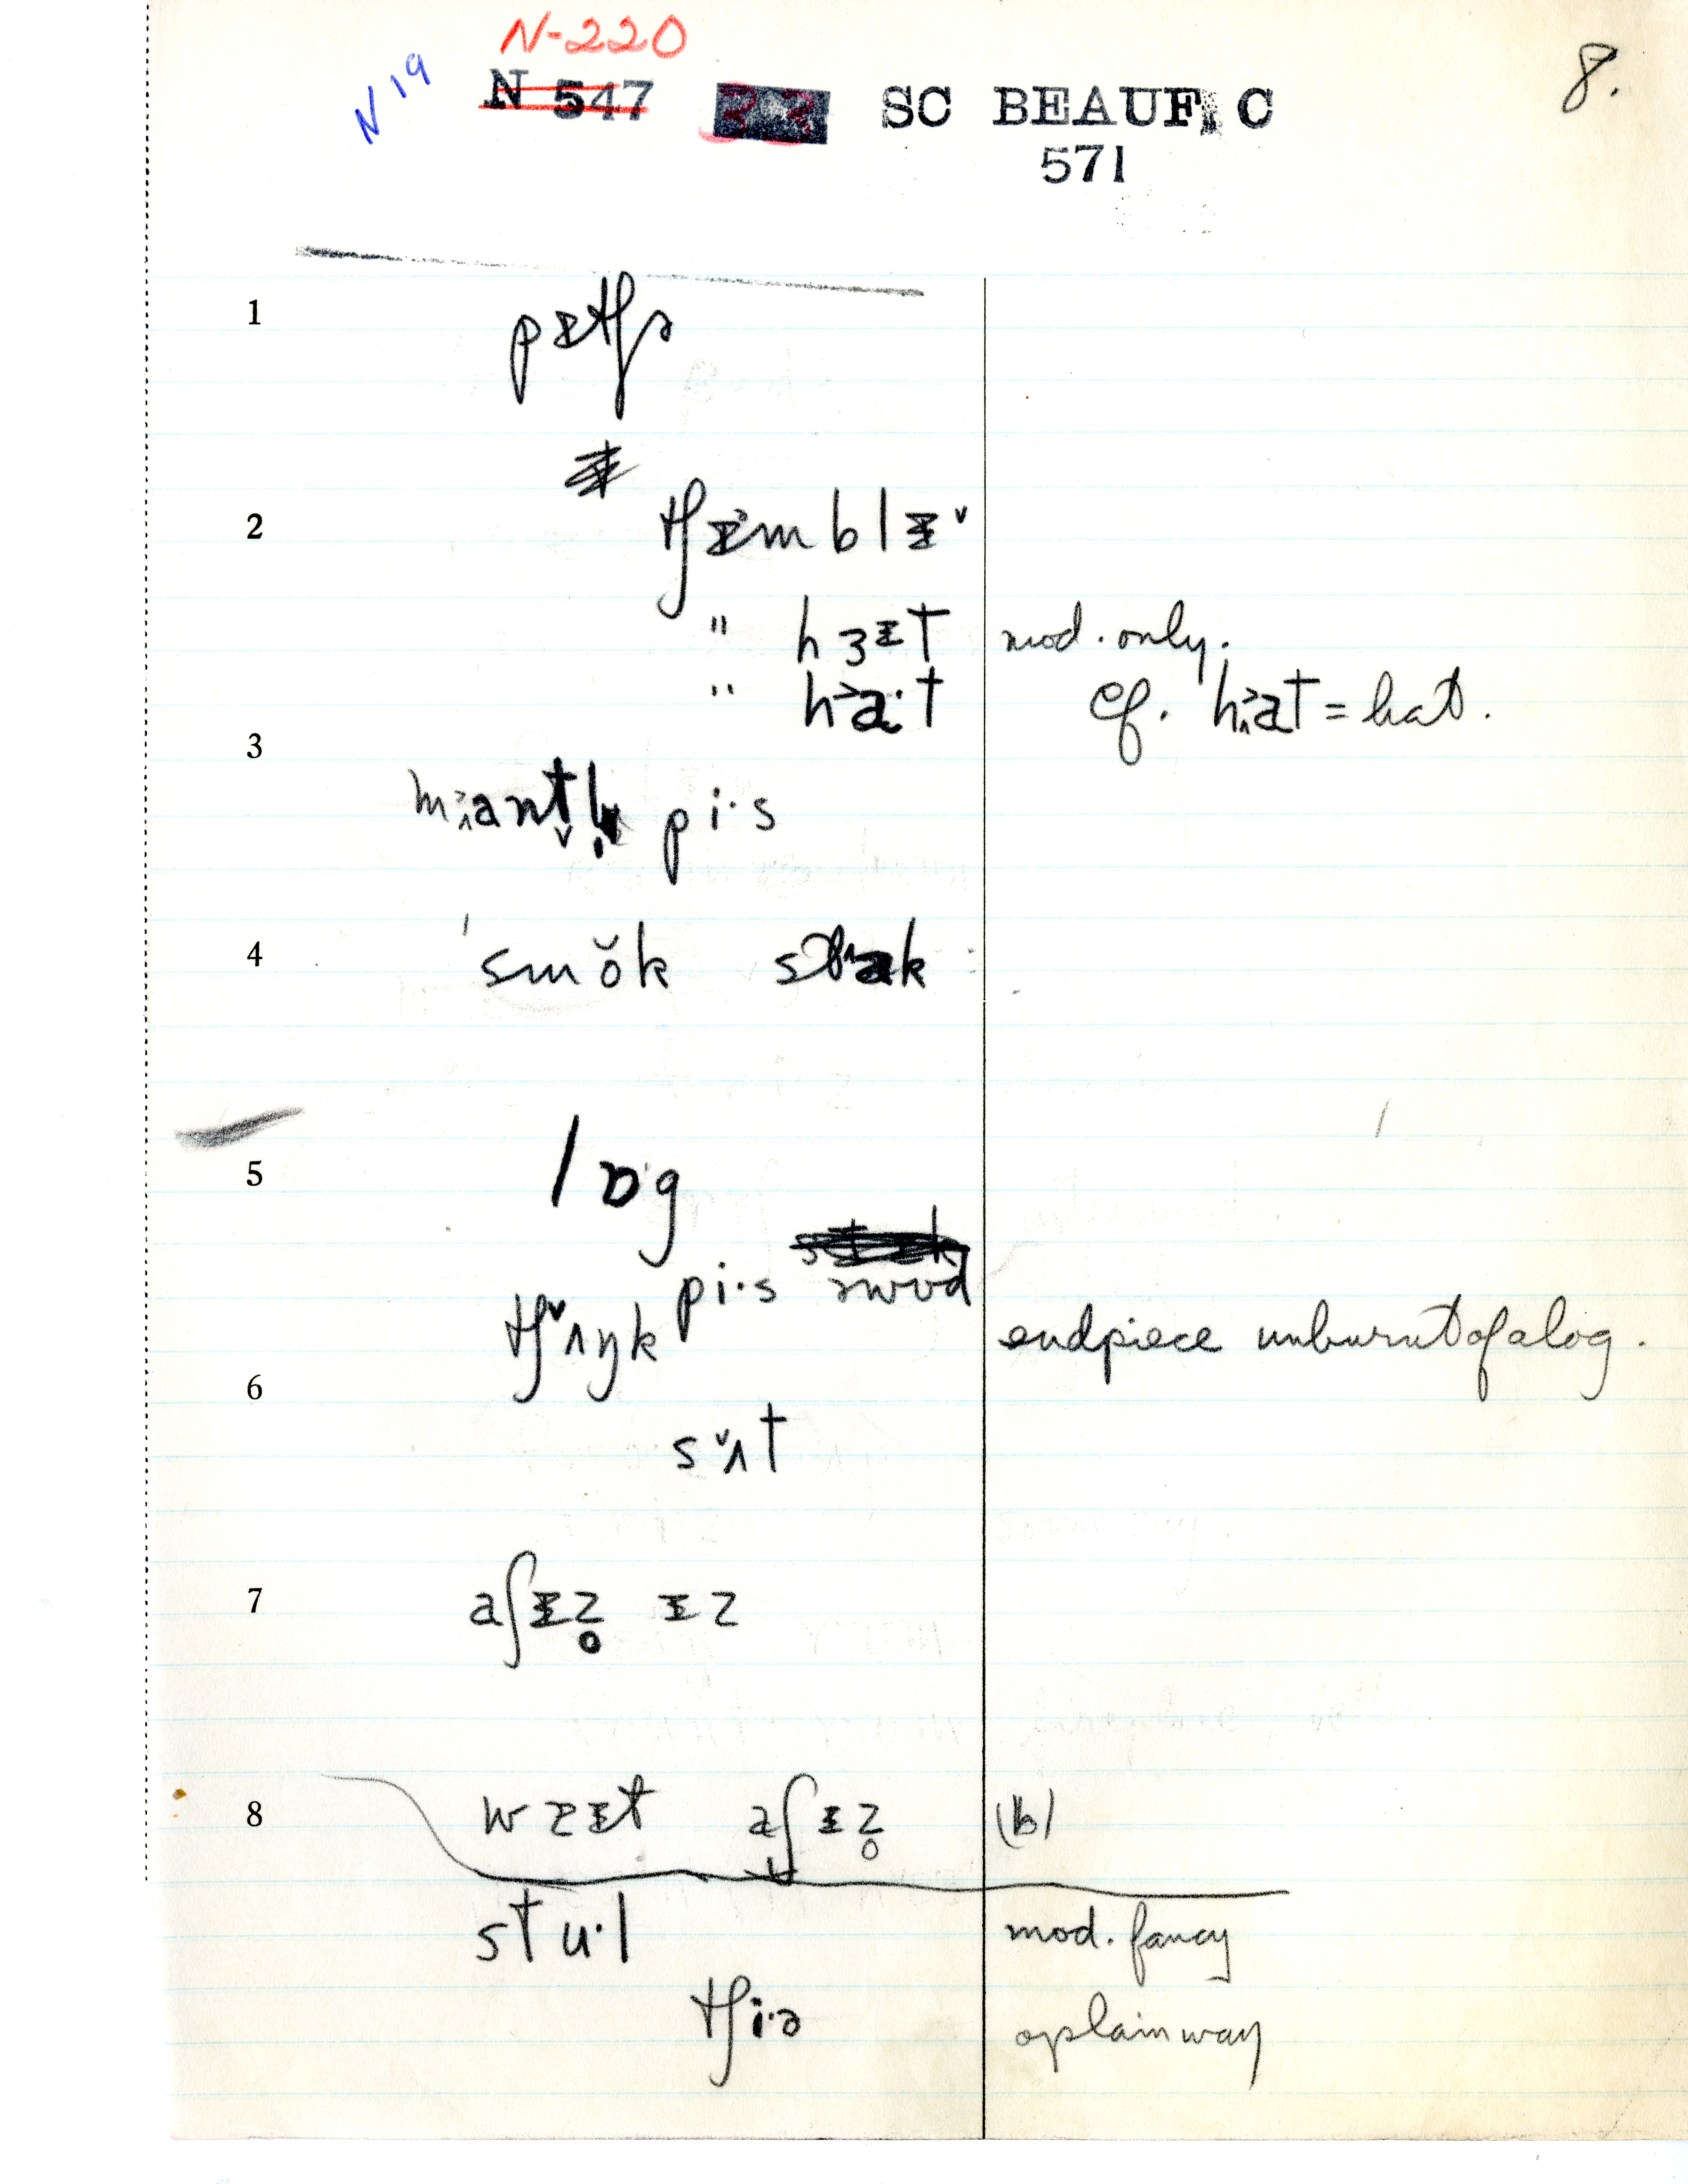 N-220
N 19
N 547 SC BEAUF C 8.
571
1
pɪtʃə
2
tʃɪmblɪ
" hɜɪt mod. only.
" ha·t cf. hat = hat.
3
mantl̩ pi·s
4
'smŏk stak
5
lɒ·g
pi·s əwʊd
tʃʌŋk endpiece unburnt of a log.
6
sʌt
7
aʃɪz̥ ɪz
8
wɛɪt aʃɪz̥ (b)
stu·l mod. fancy
tʃi·ə o plain way